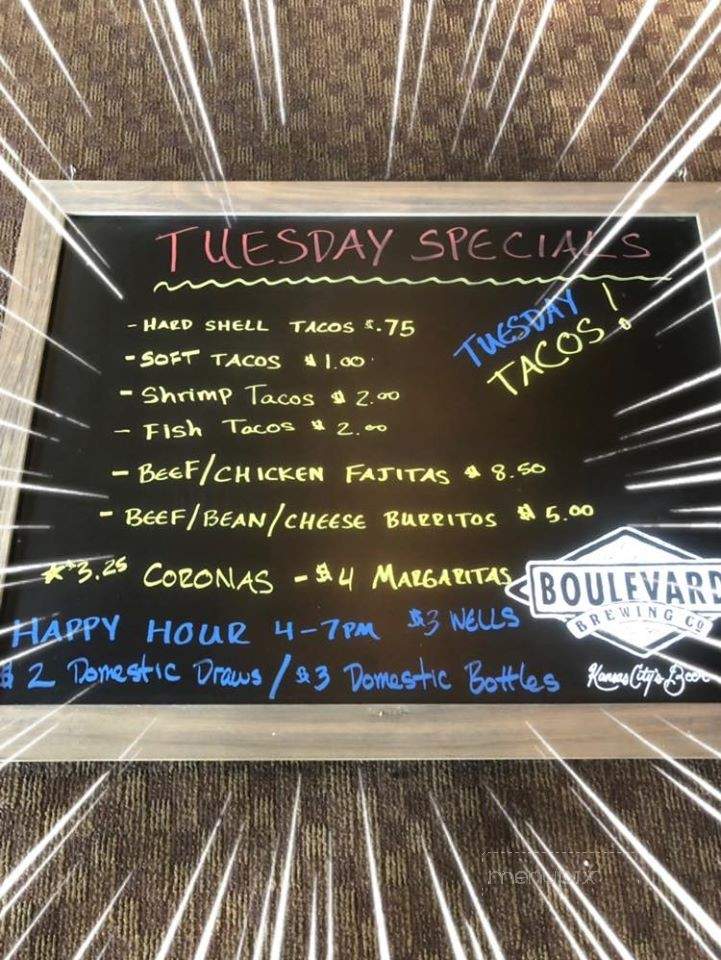 TUESDAY SPECIALS
TUESDAY
TACOS!
- HARD SHELL TACOS $.75
- SOFT TACOS $1.00
- Shrimp Tacos $2.00
- Fish Tacos $2.00
- BEEF/CHICKEN FAJITAS $8.50
- BEEF/BEAN/CHEESE BURRITOS $5.00
$3.25 CORONAS - $4 MARGARITAS
HAPPY HOUR 4-7PM $3 WELLS
$2 Domestic Draws / $3 Domestic Bottles
BOULEVARD
BREWING CO
Kansas City's Beer
menupix